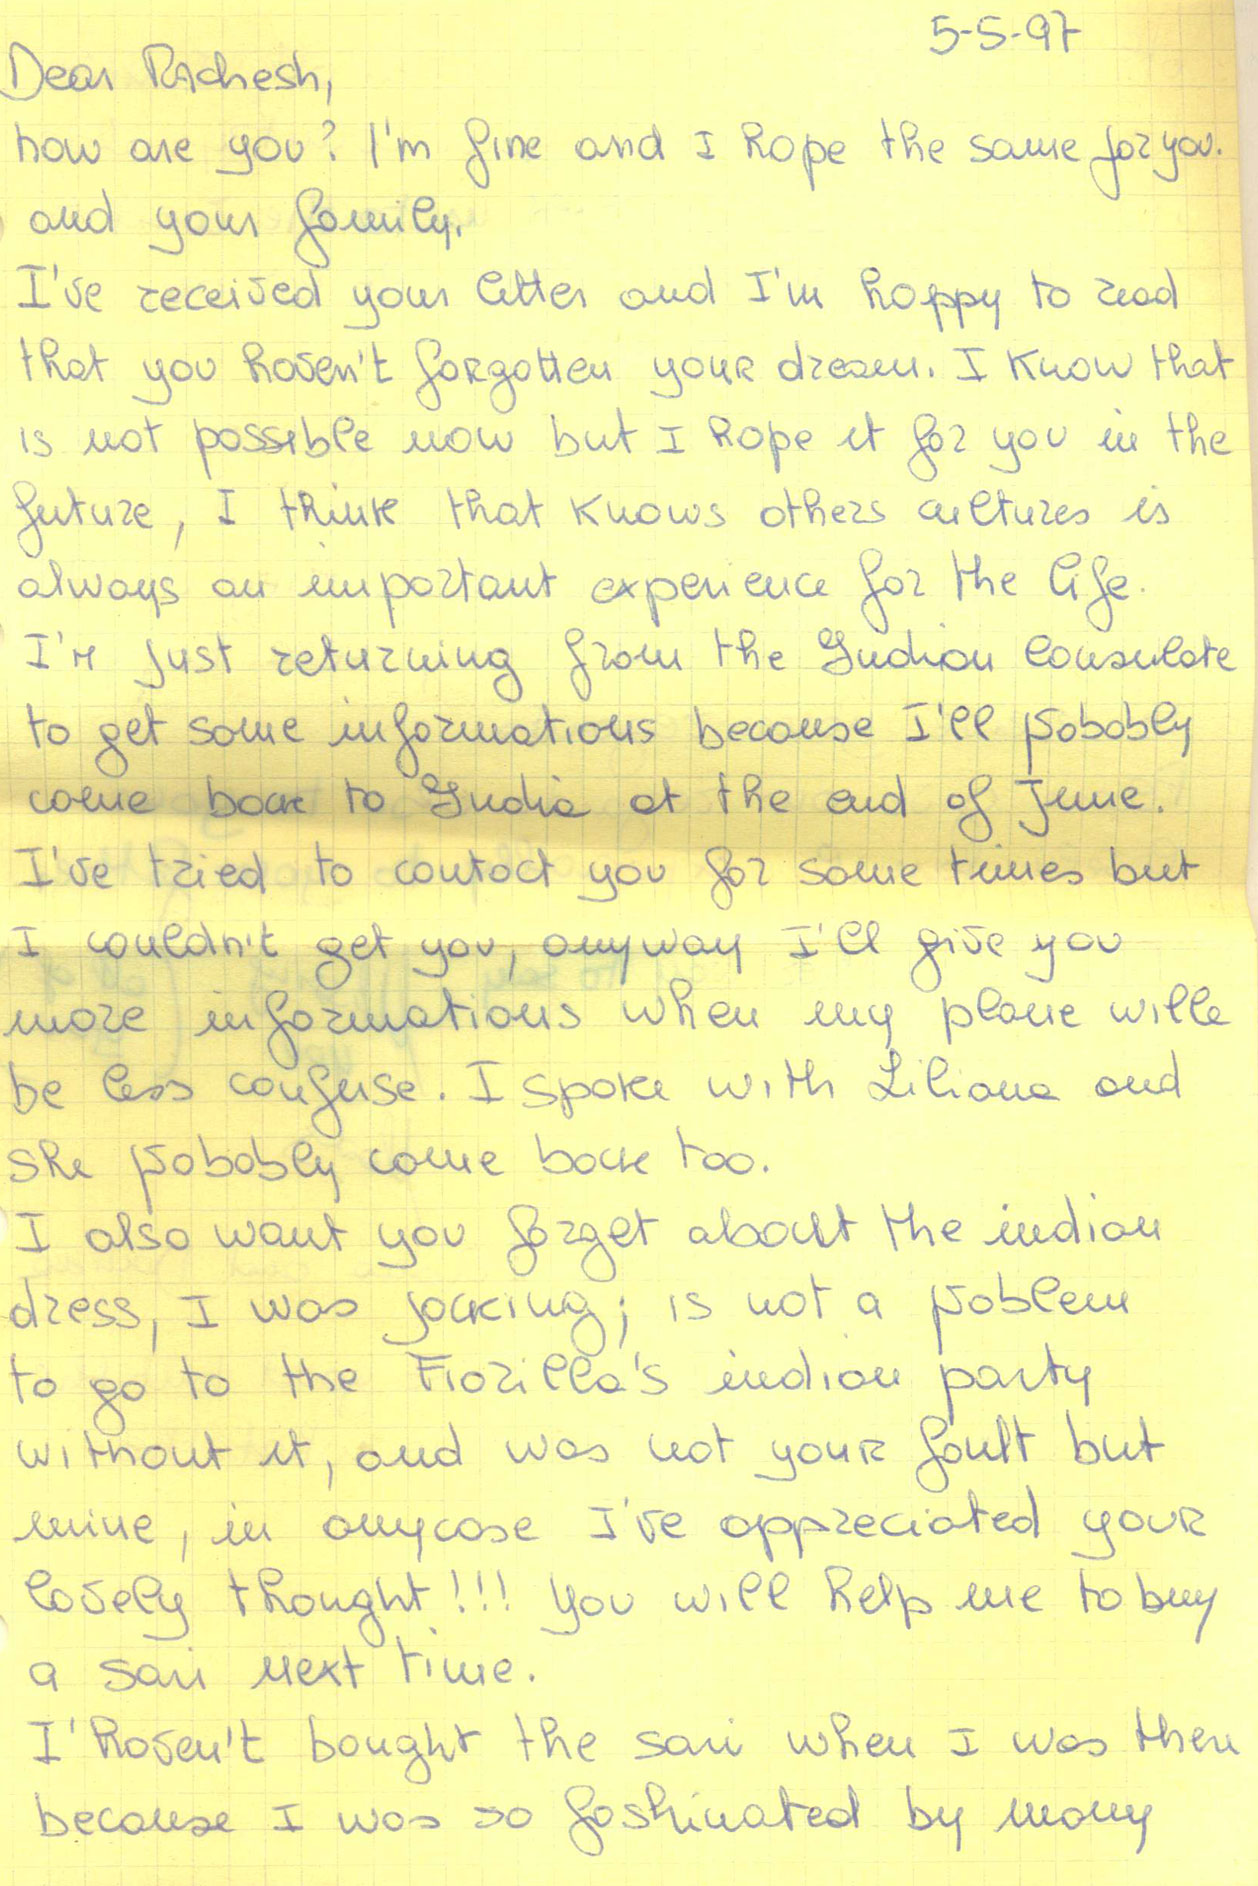 5-5-97
Dear Rachesh,
how are you? I'm fine and I hope the same for you.
and your family.
I've received your letter and I'm happy to read
that you haven't forgotten your dream. I know that
is not possible now but I hope it for you in the
future, I think that knows others cultures is
always an important experience for the life.
I'm just returning from the Indian Consulate
to get some informations because I'll probably
come back to India at the end of June.
I've tried to contact you for some times but
I couldn't get you, anyway I'll give you
more informations when my plane wille
be less confuse. I spoke with Liliana and
she probably come back too.
I also want you forget about the indian
dress, I was jocking; is not a problem
to go to the Fiorella's indian party
without it, and was not your fault but
mine, in anycase I've appreciated your
lovely thought!!! You will help me to buy
a sari next time.
I'haven't bought the sari when I was there
because I was so fashinated by many